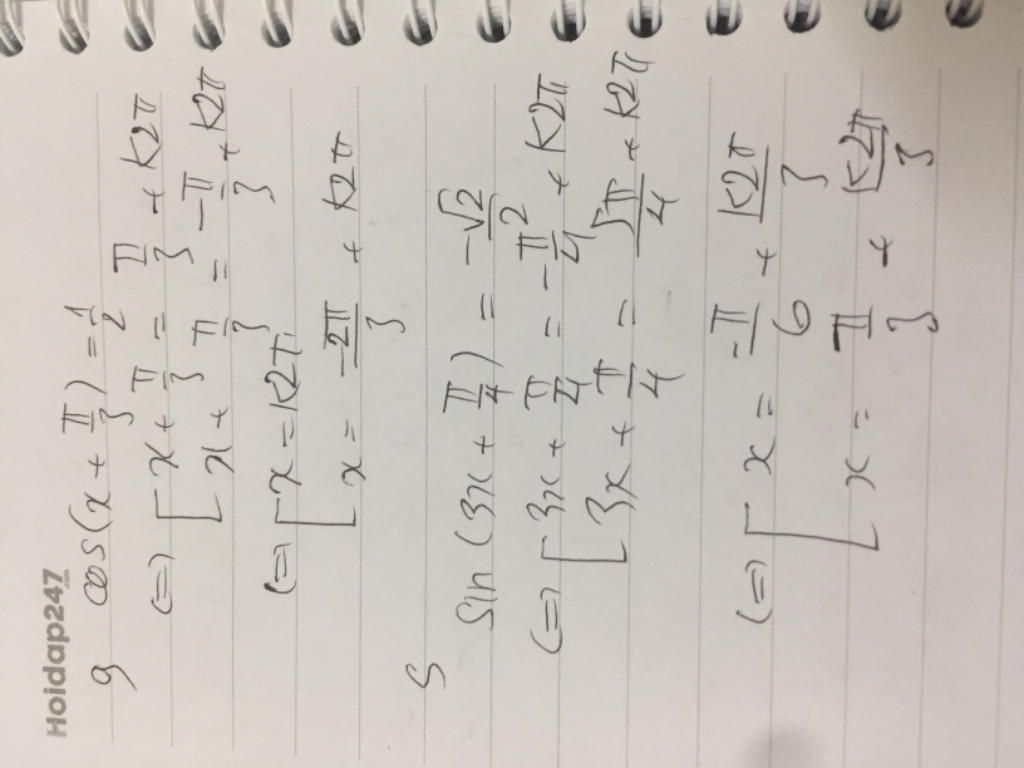 Hoidap247.com
9 cos(x + π/3) = 1/2
(=) [ x + π/3 = π/3 + k2π
x + π/3 = -π/3 + k2π
(=) [ x = k2π
x = -2π/3 + k2π
5
sin (3x + π/4) = -√2/2
(=) [ 3x + π/4 = -π/4 + k2π
3x + π/4 = 5π/4 + k2π
(=) [ x = -π/6 + k2π/3
x = π/3 + k2π/3